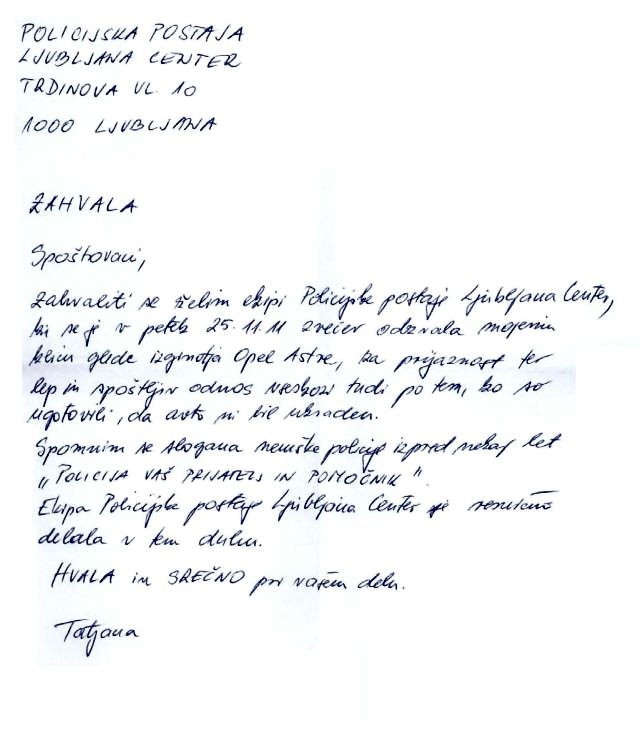 POLICIJSKA POSTAJA
LJUBLJANA CENTER
TRDINOVA UL. 10
1000 LJUBLJANA
ZAHVALA
Spoštovani,
zahvaliti se želim ekipi Policijske postaje Ljubljana Center,
ki se je v petek 25.11.11 zvečer odzvala mojemu
klicu glede izginotja Opel Astre, za prijaznost ter
lep in spoštljiv odnos navkljub tudi po tem, ko so
ugotovili, da avto ni bil ukraden.
Spomnim se slogana nemške policije izpred nekaj let
„POLICIJA VAŠ PRIJATELJ IN POMOČNIK".
Ekipa Policijske postaje Ljubljana Center je resnično
delala v tem duhu.
HVALA in SREČNO pri vašem delu.
Tatjana